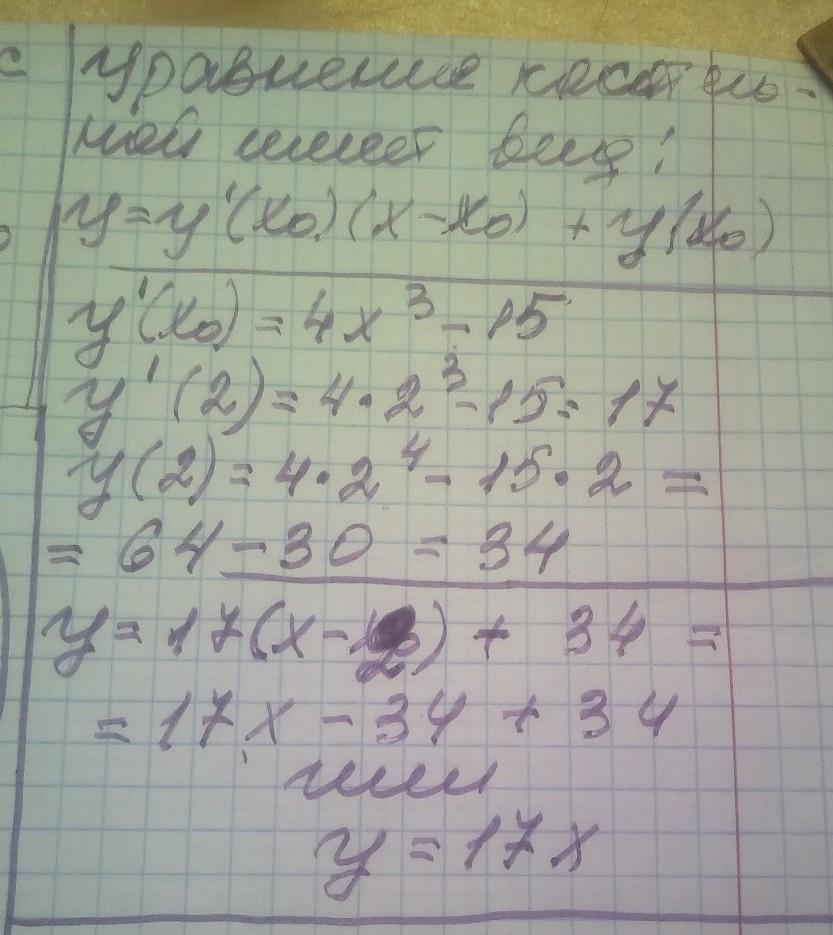 Уравнение касатель-
ной имеет вид:
y=y'(x₀)(x-x₀) + y(x₀)
y'(x₀)=4x³-15
y'(2)=4·2³-15=17
y(2)=4·2⁴-15·2=
=64-30=34
y=17(x-2)+34=
=17x-34+34
или
y=17x